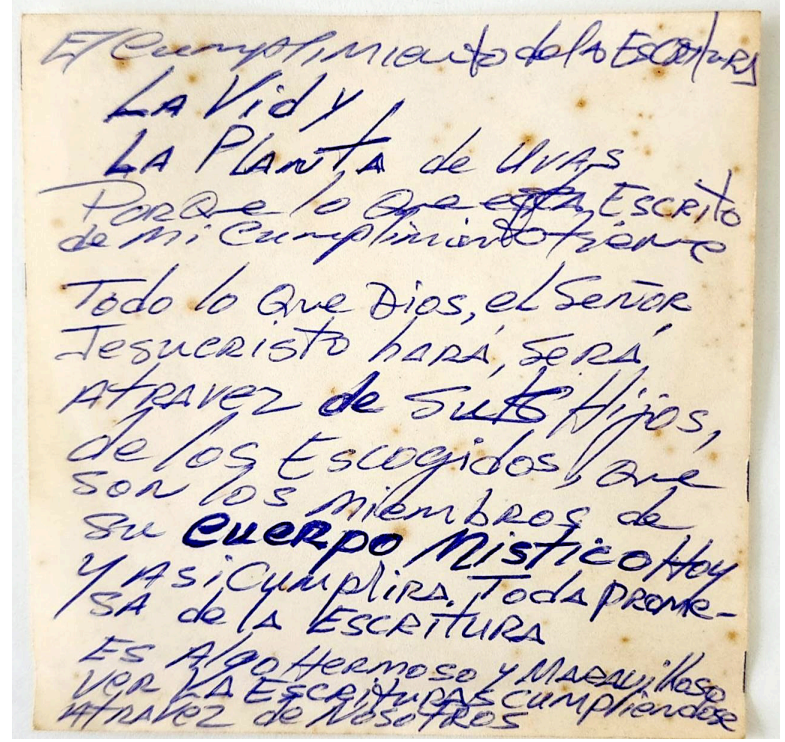 El Cumplimiento de la Escritura
LA Vid y,
LA PLANTA de UVAS
PORQue lo Que esta ESCRito
de mi Cumplimiento tiene
Todo lo Que Dios, el Señor,
Jesucristo hará, será
Atravez de Sus Hijos,
de los Escogidos, que
son los miembros de
su Cuerpo Mistico Hoy
Y Asi Cumplira Toda prome-
SA de la ESCRITURA
ES Algo Hermoso y Maravilloso
Ver LA Escrituras cumpliendose
Atravez de Nosotros